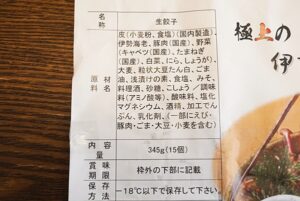 名称 生餃子
原材料名 皮(小麦粉、食塩)(国内製造)、
伊勢海老、豚肉(国産)、野菜
(キャベツ(国産)、たまねぎ
(国産)、白菜、にら、しょうが)、
大麦、粒状大豆たん白、ごま
油、浅漬けの素、食塩、みそ、
料理酒、砂糖、こしょう/調味
料(アミノ酸等)、酸味料、塩化
マグネシウム、酒精、加工でん
ぷん、乳化剤、(一部にえび・
豚肉・ごま・大豆・小麦を含む)
内容量 345g(15個)
賞味期限 枠外の下部に記載
保存方法 −18℃以下で保存して下さい。
極上の
伊